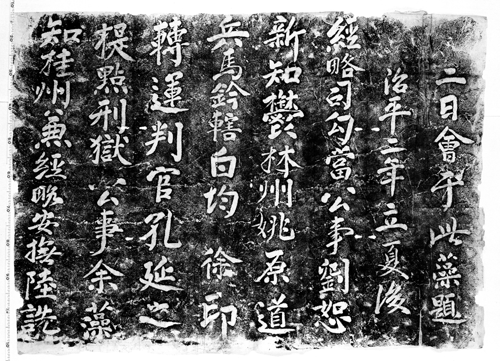 知桂州兼經略安撫陸詵
提點刑獄公事余藻
轉運判官孔延之
兵馬鈐轄白均 徐印
新知鬱林州姚原道
經略司勾當公事劉恕
治平二年立夏後
二日會于此藻題